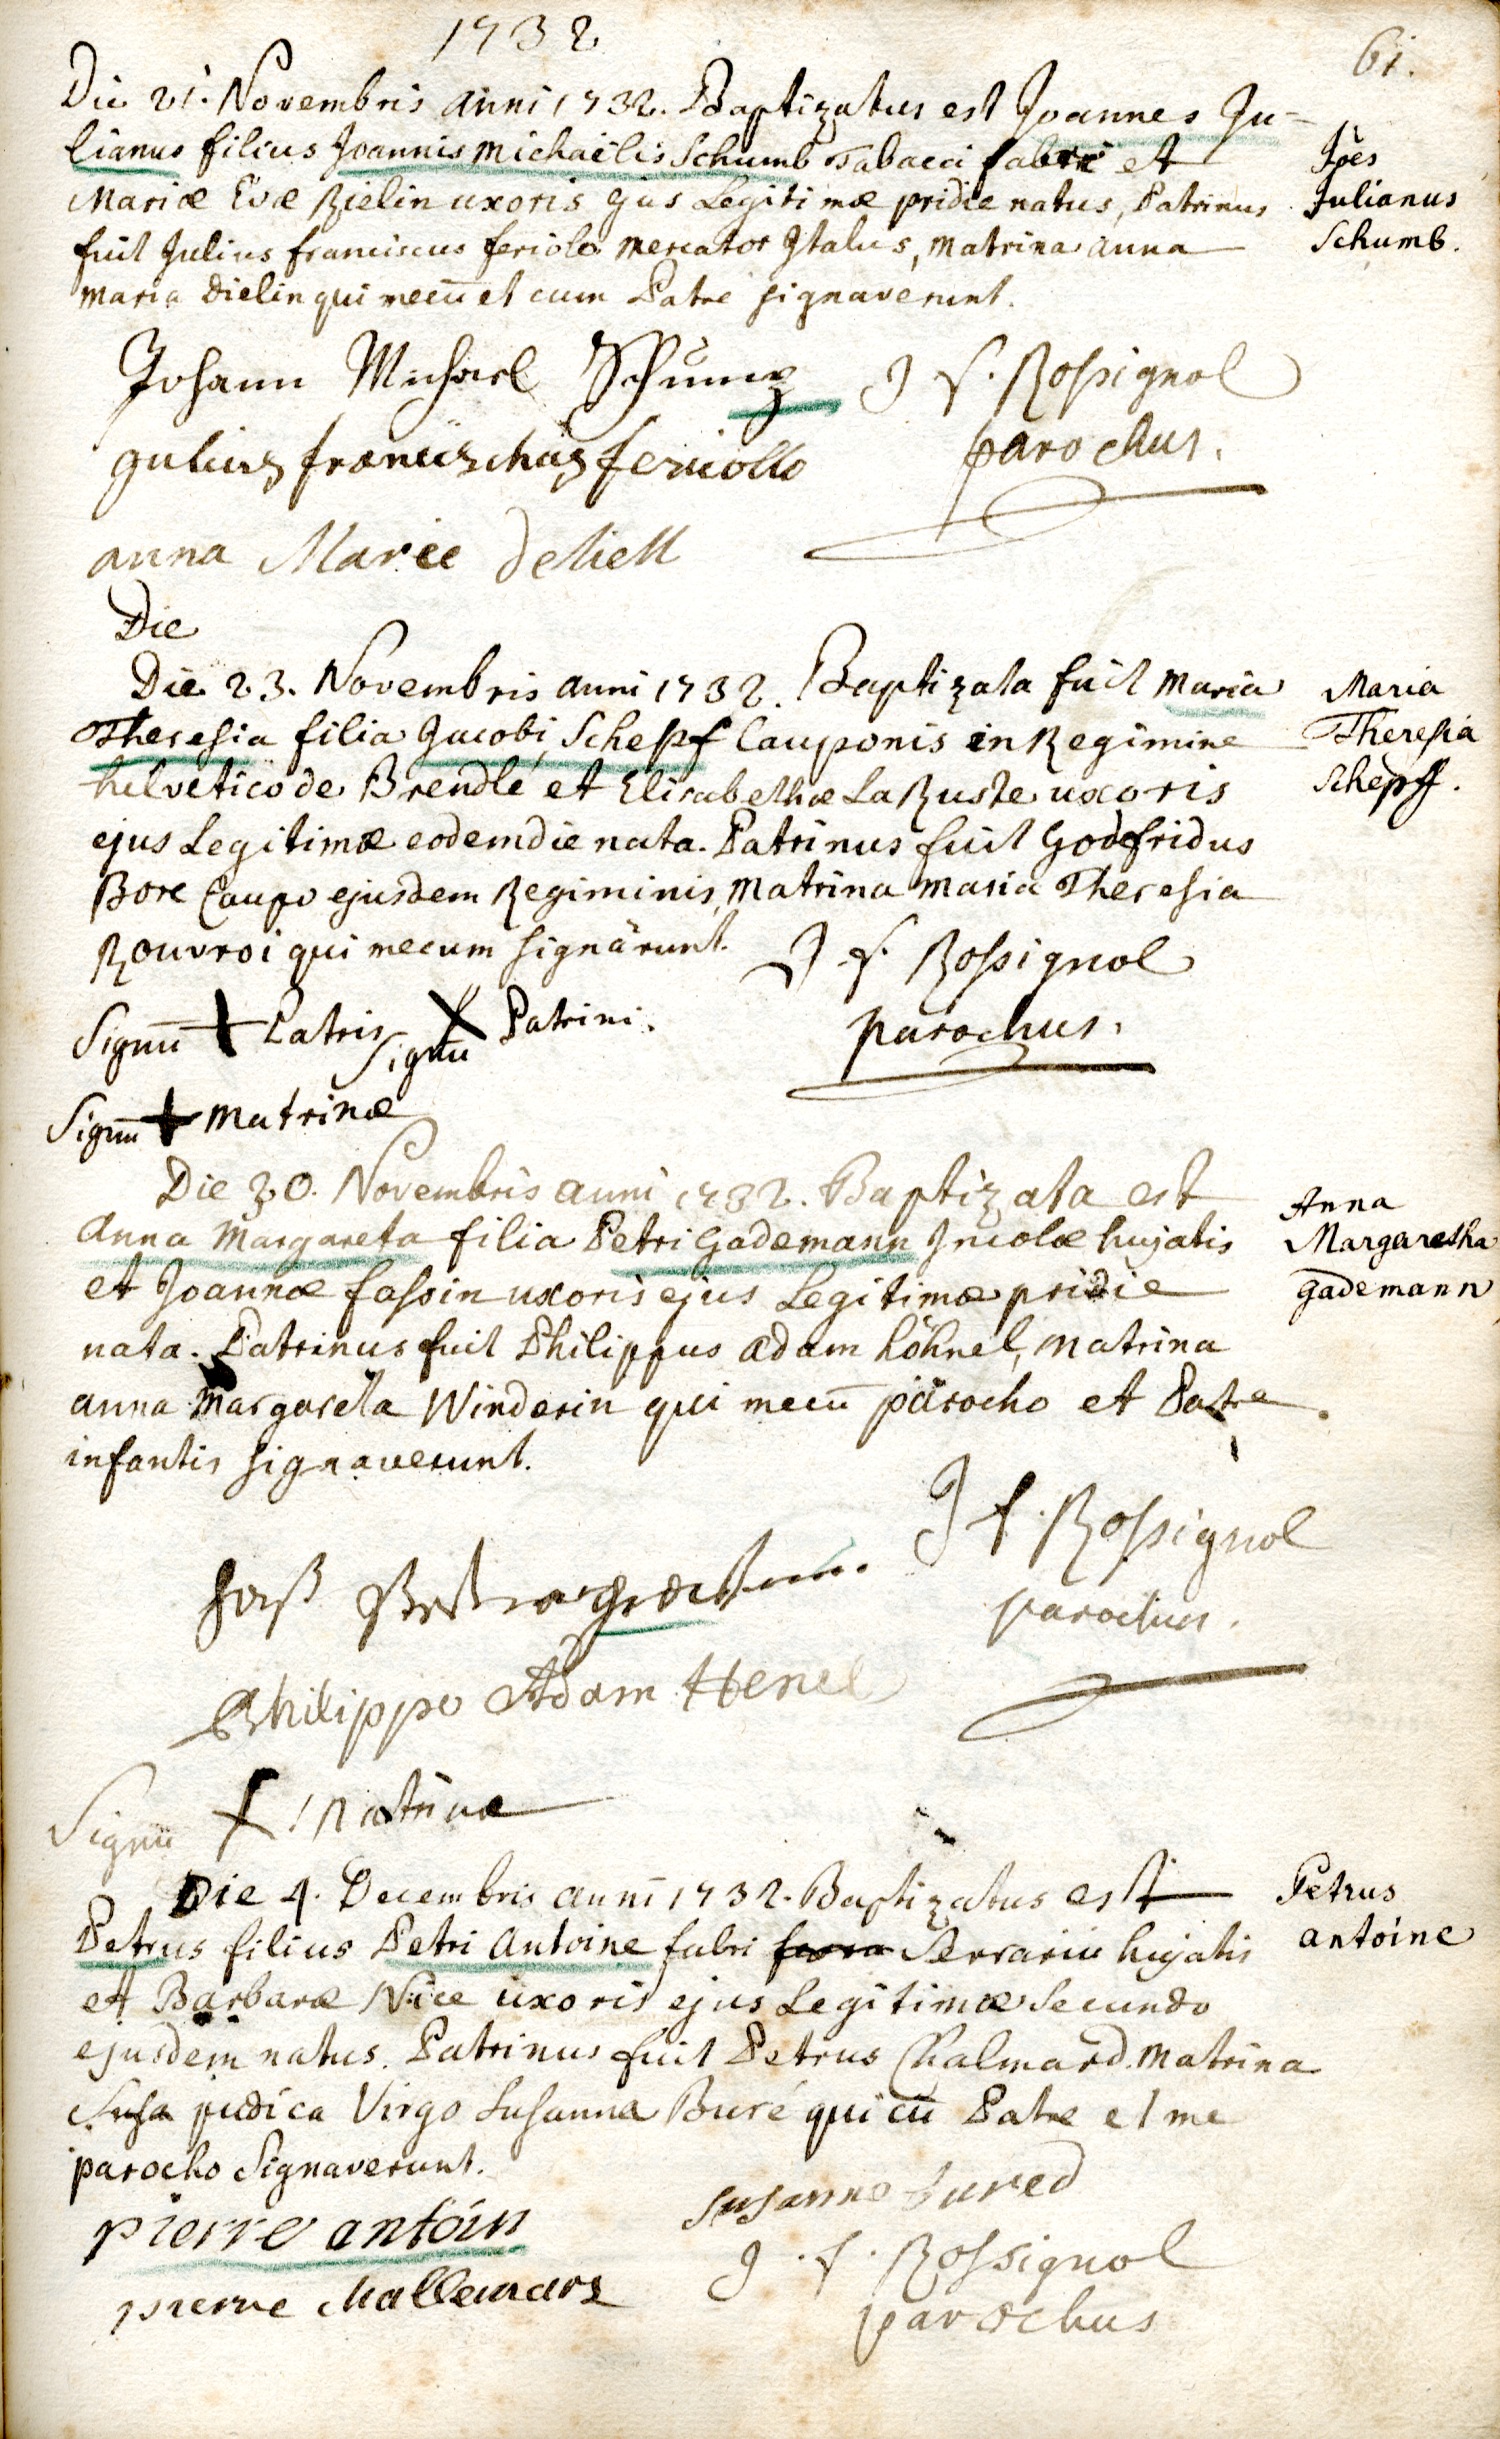 1732
61.
Die 21. Novembris anni 1732. Baptizatus est Joannes Ju-
lianus filius Joannis Michaëlis Schumb Tabacci fabri et
Mariæ Evæ Rielin uxoris ejus Legitimæ pridie natus, Patrinus
fuit Julius franciscus feriolo Mercator Italus, Matrina anna
Maria Dielin qui mecū et cum Patre signaverunt.
Joēs
Julianus
Schumb.
Johann Michael
J f. Rossignol
parochus.
feriollo
anna Marie deliell
Die
Die 23. Novembris anni 1732. Baptizata fuit Maria
Theresia filia Jacobi Schepf Cauponis in Regimine
helvetico de Brendlé et Elisabethæ La Ruste uxoris
ejus Legitimæ eodem die nata. Patrinus fuit Godefridus
Bore Caupo ejusdem Regiminis, Matrina Maria Theresia
Rouvroi qui mecum signārunt.
Maria
Theresia
Schepff.
J f. Rossignol
parochus.
Signū + Patris Signū X Patrini.
Signū + Matrinæ
Die 30. Novembris anni 1732. Baptizata est
Anna Margareta filia Petri Gademann Incolæ hujatis
et Joannæ fassin uxoris ejus Legitimæ pridie
nata. Patrinus fuit Philippus adam höhnel, Matrina
anna Margareta Winderin qui mecū parocho et Patre
infantis signaverunt.
Anna
Margaretha
gademann
J f. Rossignol
parochus.
Philippo Adam Henel
Signū X Matrinæ
Die 4. Decembris anni 1732. Baptizatus est
Petrus filius Petri Antoine fabri Serrarii hujatis
et Barbaræ Nice uxoris ejus Legitimæ Secundo
ejusdem natus. Patrinus fuit Petrus Chalmard. Matrina
pudica Virgo Susanna Buré qui cū Patre et me
parocho Signaverunt.
Petrus
antoine
pierre antoin
susanne
J. f. Rossignol
parochus
pierre